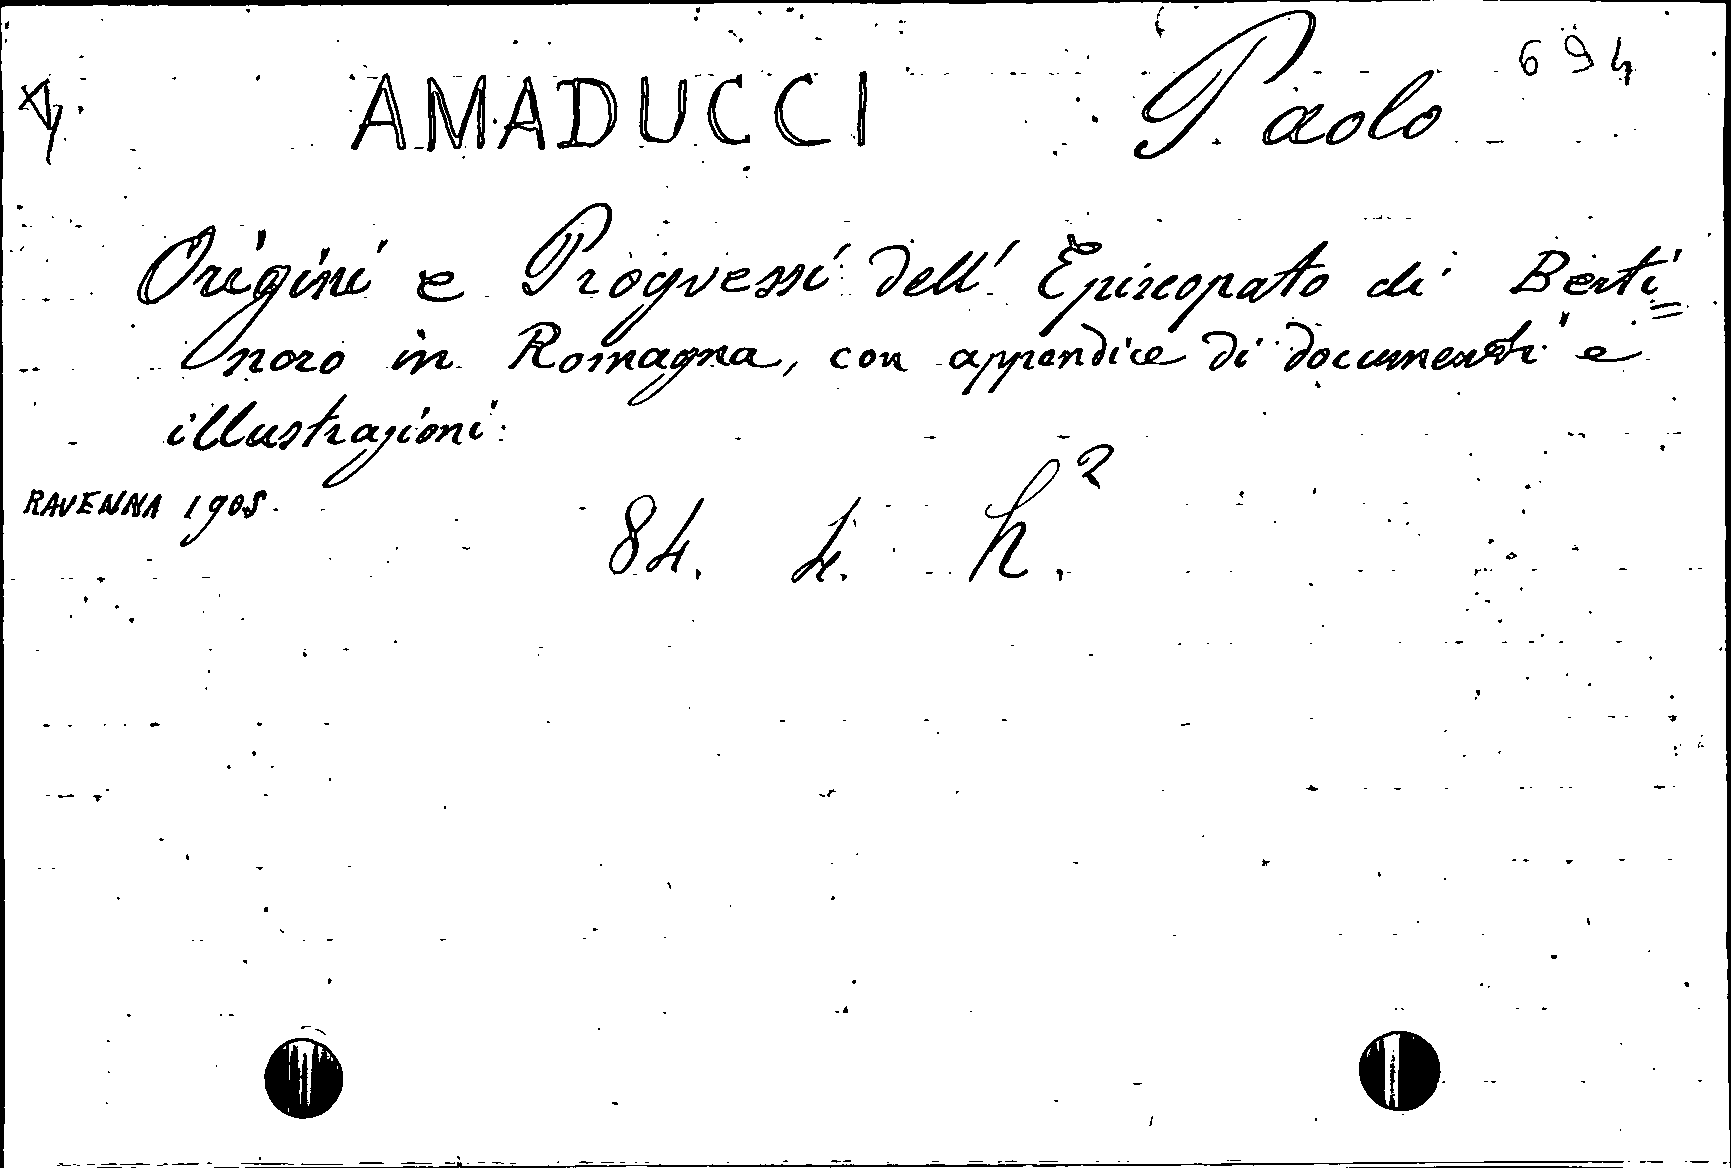 694
AMADUCCI Paolo
Origini e Progressi dell' Episcopato di Berti=
noro in Romagna, con appendice di documenti e
illustrazioni.
RAVENNA 1905.
84. 4. h.²